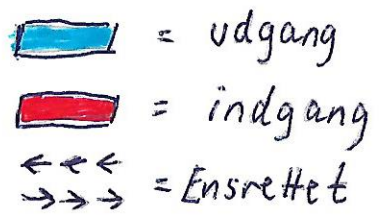 = udgang
= indgang
= Ensrettet